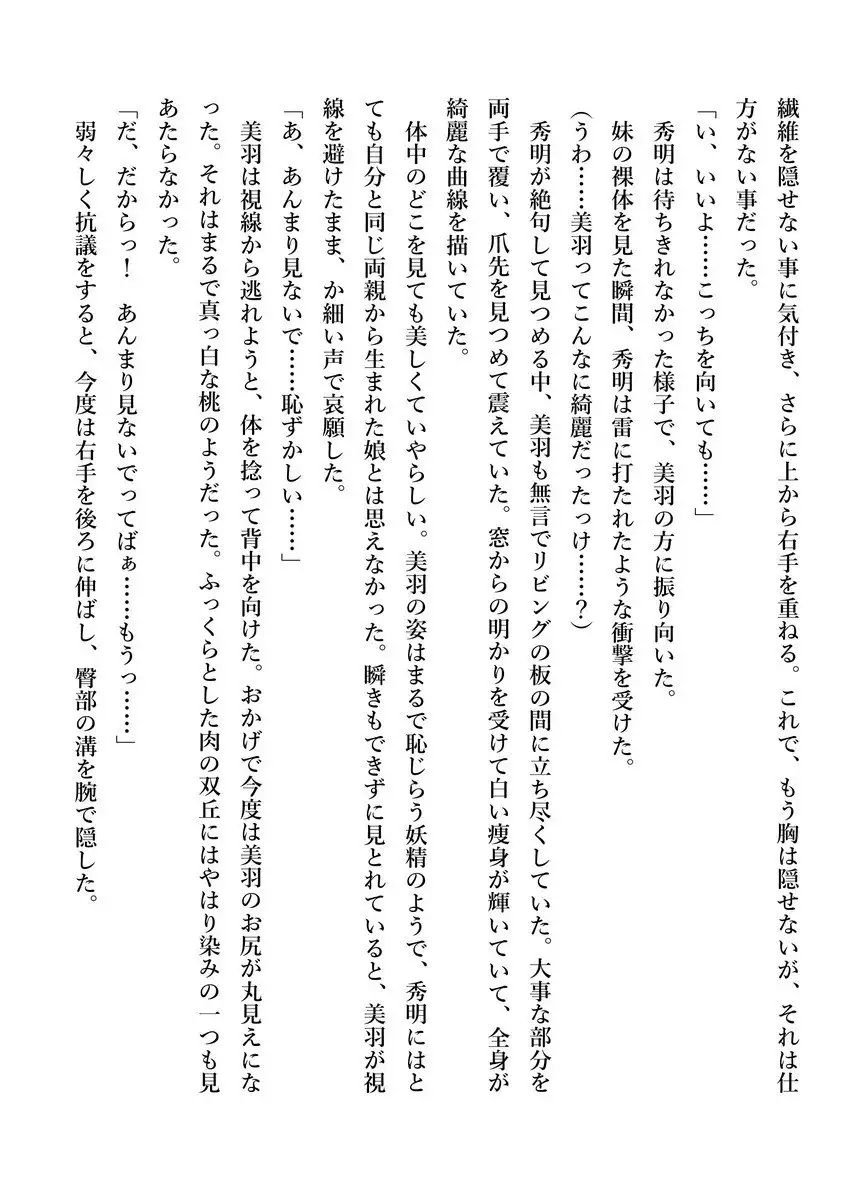 繊維を隠せない事に気付き、さらに上から右手を重ねる。これで、もう胸は隠せないが、それは仕
方がない事だった。
「い、いいよ……こっちを向いても……」
秀明は待ちきれなかった様子で、美羽の方に振り向いた。
妹の裸体を見た瞬間、秀明は雷に打たれたような衝撃を受けた。
(うわ……美羽ってこんなに綺麗だったっけ……?)
秀明が絶句して見つめる中、美羽も無言でリビングの板の間に立ち尽くしていた。大事な部分を
両手で覆い、爪先を見つめて震えていた。窓からの明かりを受けて白い痩身が輝いていて、全身が
綺麗な曲線を描いていた。
体中のどこを見ても美しくていやらしい。美羽の姿はまるで恥じらう妖精のようで、秀明にはと
ても自分と同じ両親から生まれた娘とは思えなかった。瞬きもできずに見とれていると、美羽が視
線を避けたまま、か細い声で哀願した。
「あ、あんまり見ないで……恥ずかしい……」
美羽は視線から逃れようと、体を捻って背中を向けた。おかげで今度は美羽のお尻が丸見えにな
った。それはまるで真っ白な桃のようだった。ふっくらとした肉の双丘にはやはり染みの一つも見
あたらなかった。
「だ、だからっ!　あんまり見ないでってばぁ……もうっ……」
弱々しく抗議をすると、今度は右手を後ろに伸ばし、臀部の溝を腕で隠した。